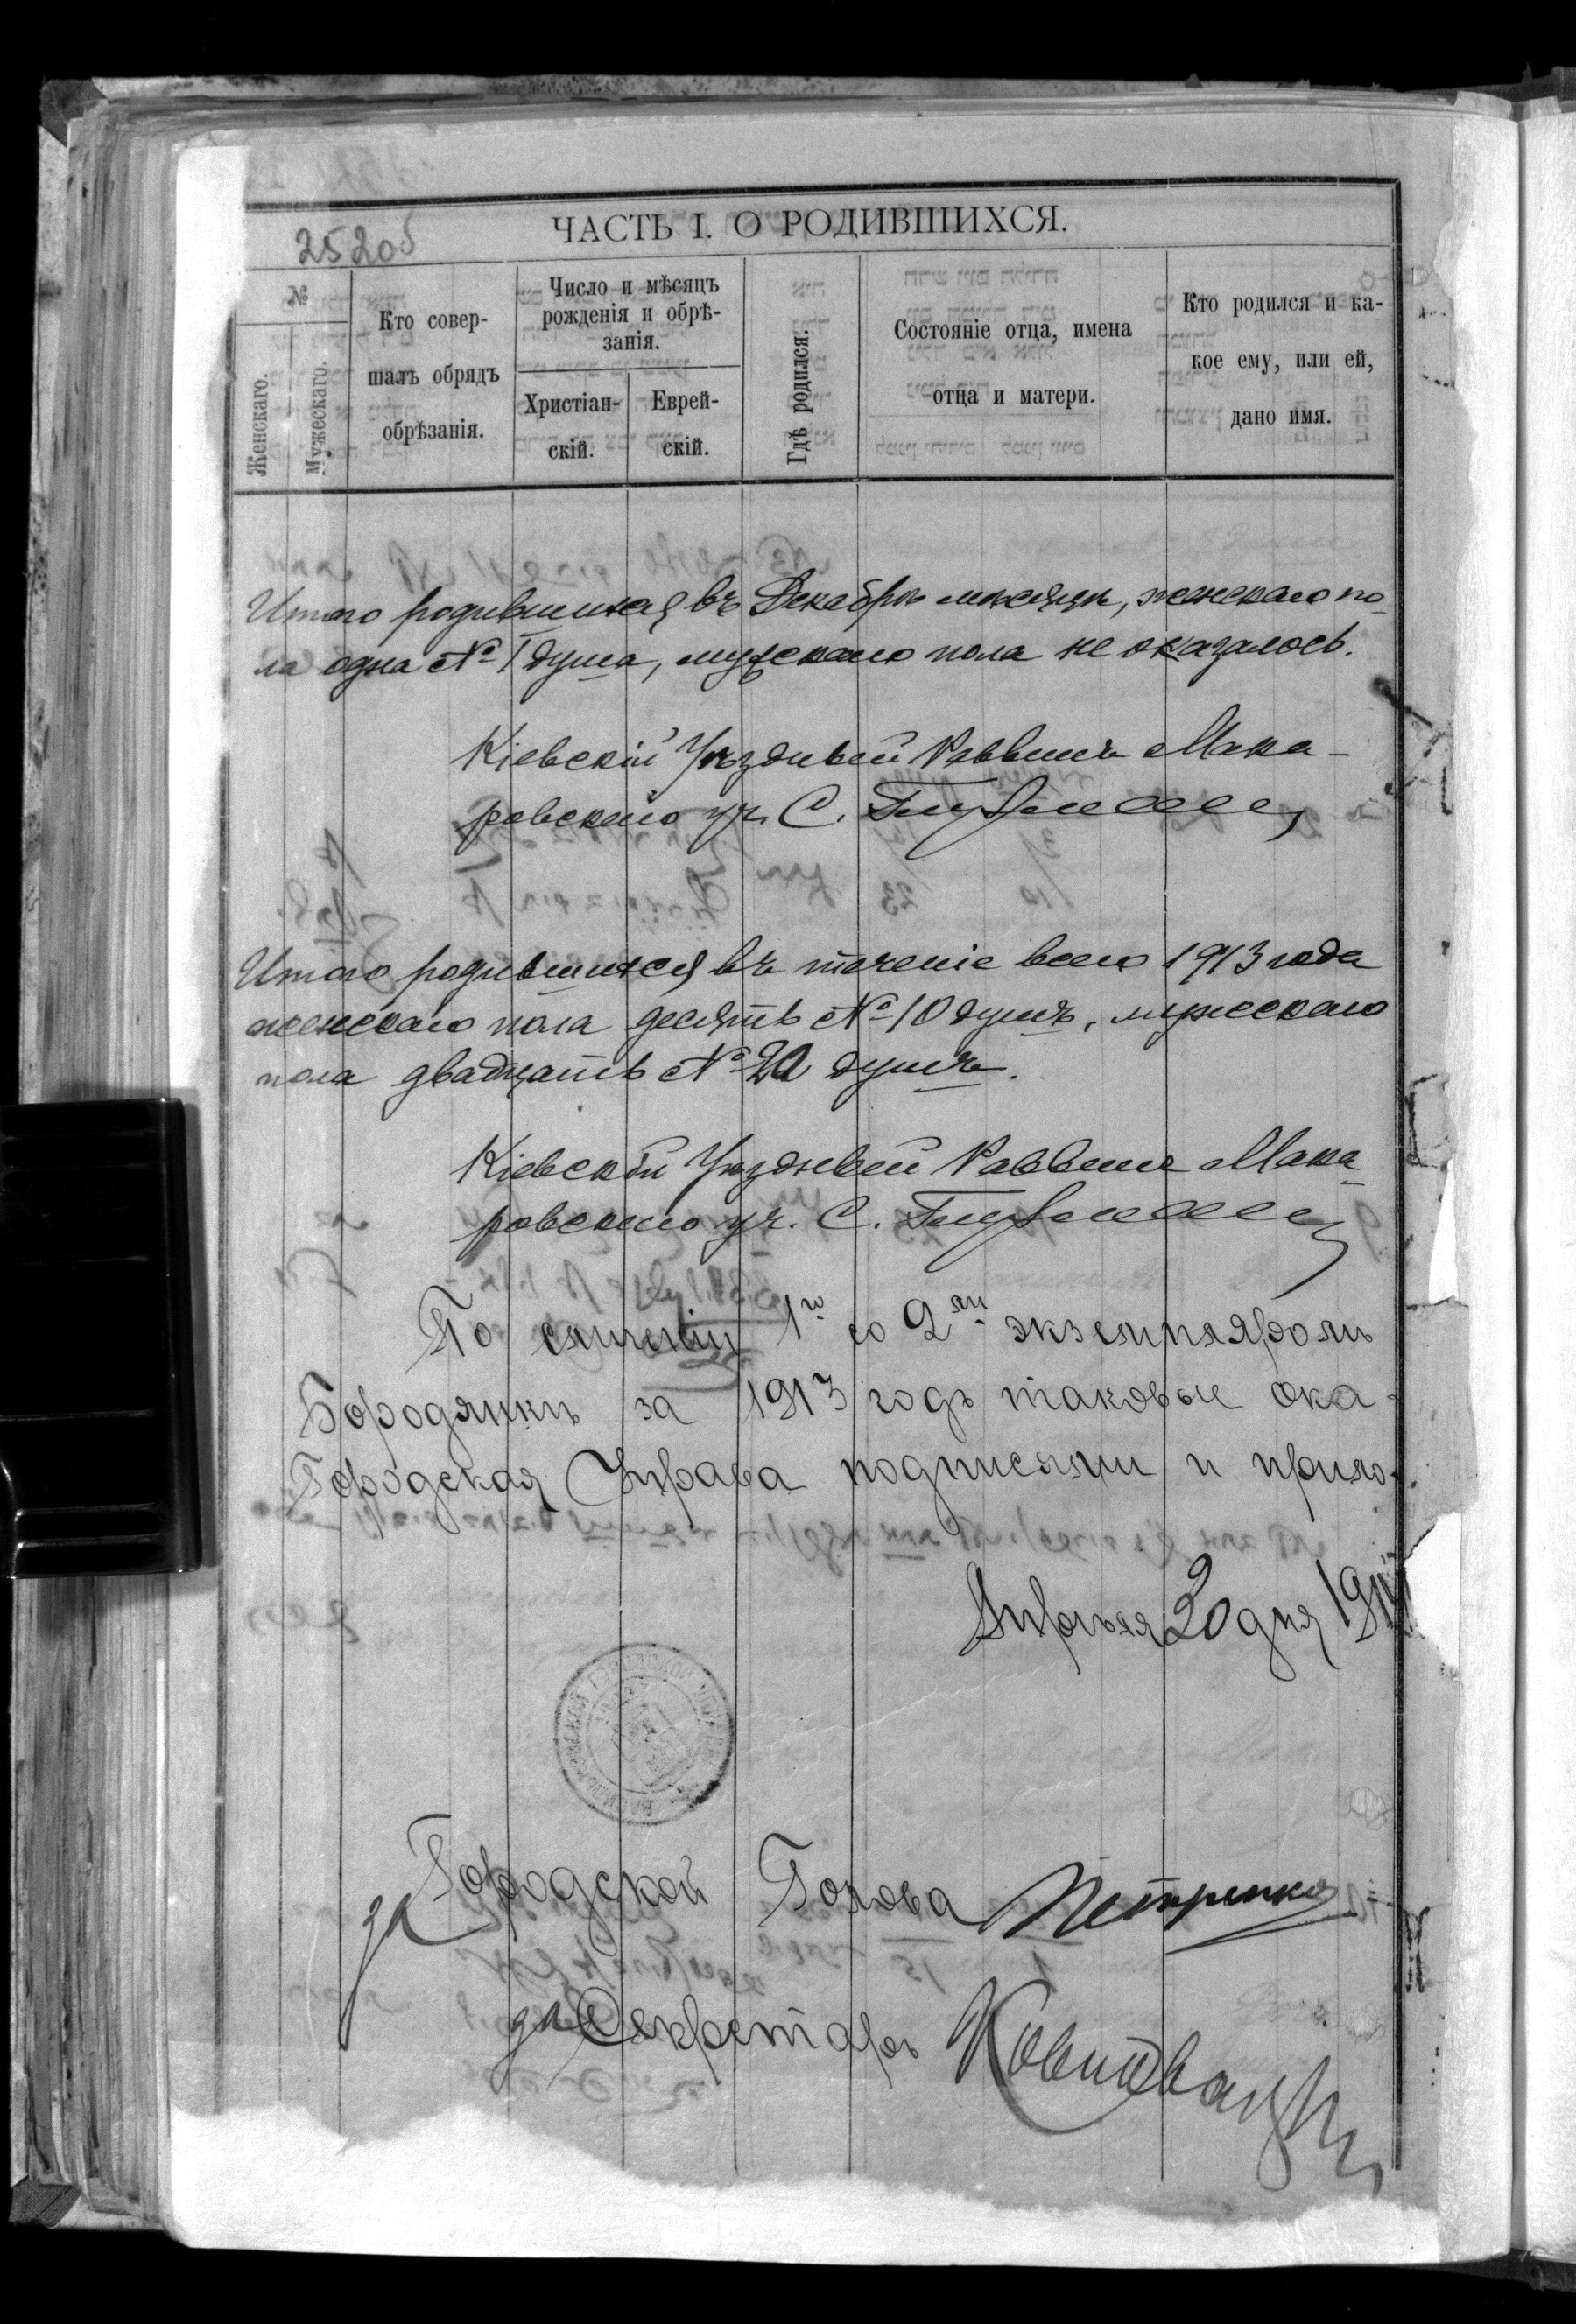 252об
ЧАСТЬ I. О РОДИВШИХСЯ.
№
Женскаго.
Мужескаго.
Кто совер-
шалъ обрядъ
обрѣзанія.
Число и мѣсяцъ
рожденія и обрѣ-
занія.
Христіан-
скій.
Еврей-
скій.
Гдѣ родился.
Состояніе отца, имена
отца и матери.
Кто родился и ка-
кое ему, или ей,
дано имя.
Итого родившихся въ Декабрѣ месяцѣ, женскаго по-
ла одна № 1 душа, мужескаго пола не оказалось.
Кіевскій Уѣздный Раввинъ Мака-
ровскаго уч. С.
Итого родившихся въ теченіе всего 1913 года
женскаго пола десять № 10 душъ, мужескаго
пола двадцать № 20 душъ.
Кіевскій Уѣздный Раввинъ Мака-
ровскаго уч. С.
По сличеніи 1го со 2мъ экземпляромъ
Бородянки за 1913 годъ таковые ока-
Городская Управа подписями и прило-
Апрѣля 30 дня 1914
за Городской Голова Петренко
за Секретарь